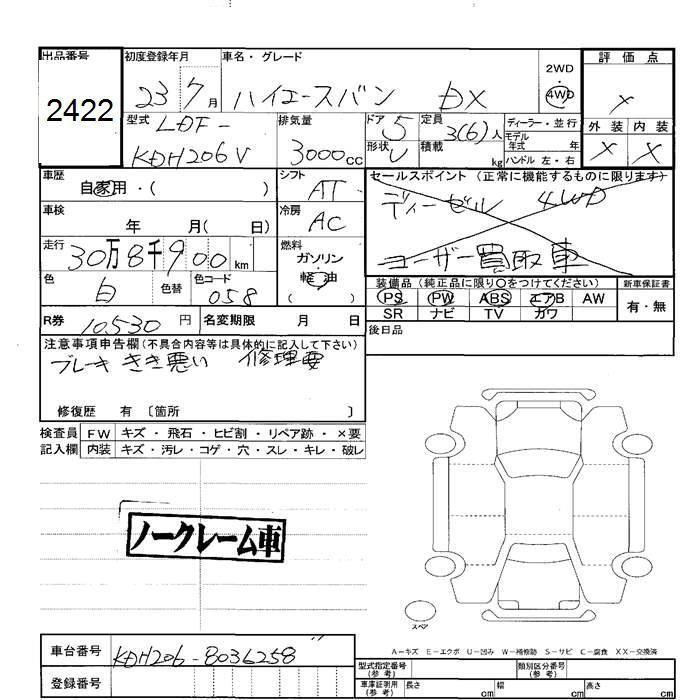 出品番号 初度登録年月 車名・グレード 2WD 評価点
2422 23 7月 ハイエースバン DX 4WD ×
型式 LDF- 排気量 ドア 5 定員 3(6)人 ディーラー・並行 外装 内装
KDH206V 3000cc 形状 V 積載 kg モデル年式 年 × ×
ハンドル 左・右
車歴 シフト セールスポイント(正常に機能するものに限ります)
自家用・( ) AT ディーゼル 4WD
車検 年 月( 日) 冷房 AC
走行 30万8千900km 燃料 ガソリン ユーザー買取車
色 白 色替 色コード 058 軽油 ( )
装備品(純正品に限り○をつけてください) 新車保証書
PS PW ABS エアB AW 有・無
SR ナビ TV カワ
R券 10,530円 名変期限 月 日 後日品
注意事項申告欄(不具合内容等は具体的に記入して下さい)
ブレーキ きき悪い 修理要
修復歴 有 〔箇所 〕
検査員 FW キズ・飛石・ヒビ割・リペア跡・×要
記入欄 内装 キズ・汚レ・コゲ・穴・スレ・キレ・破レ
ノークレーム車
スペア
A-キズ E-エクボ U-凹み W-補修跡 S-サビ C-腐食 XX-交換済
車台番号 KDH206-8036258
登録番号
型式指定番号(参考) 類別区分番号(参考)
車庫証明用(参考) 長さ cm 幅 cm 高さ cm